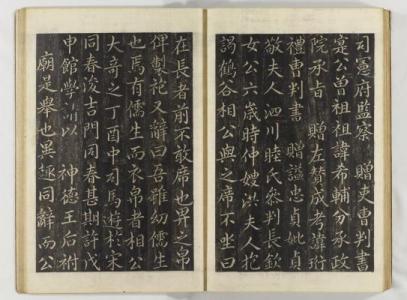 司憲府監察 贈吏曹判書
寔公曾祖祖諱希輔分承政
院承旨 贈左賛成考諱珩
禮曹判書 贈謚忠貞妣貞
敬夫人泗川睦氏叅判長欽
女公六歳時仲嫂洪夫人抱
謁鶴谷相公與之席不坐曰
在長者前不敢席也畀之帛
俾製又辭曰吾雖幼儒生
也焉有儒生而衣帛者相公
大奇之丁酉中司馬遊於宋
同春浚吉門同春甚期許戊
申館學以 神德王后祔
廟是舉也異趣同辭而公